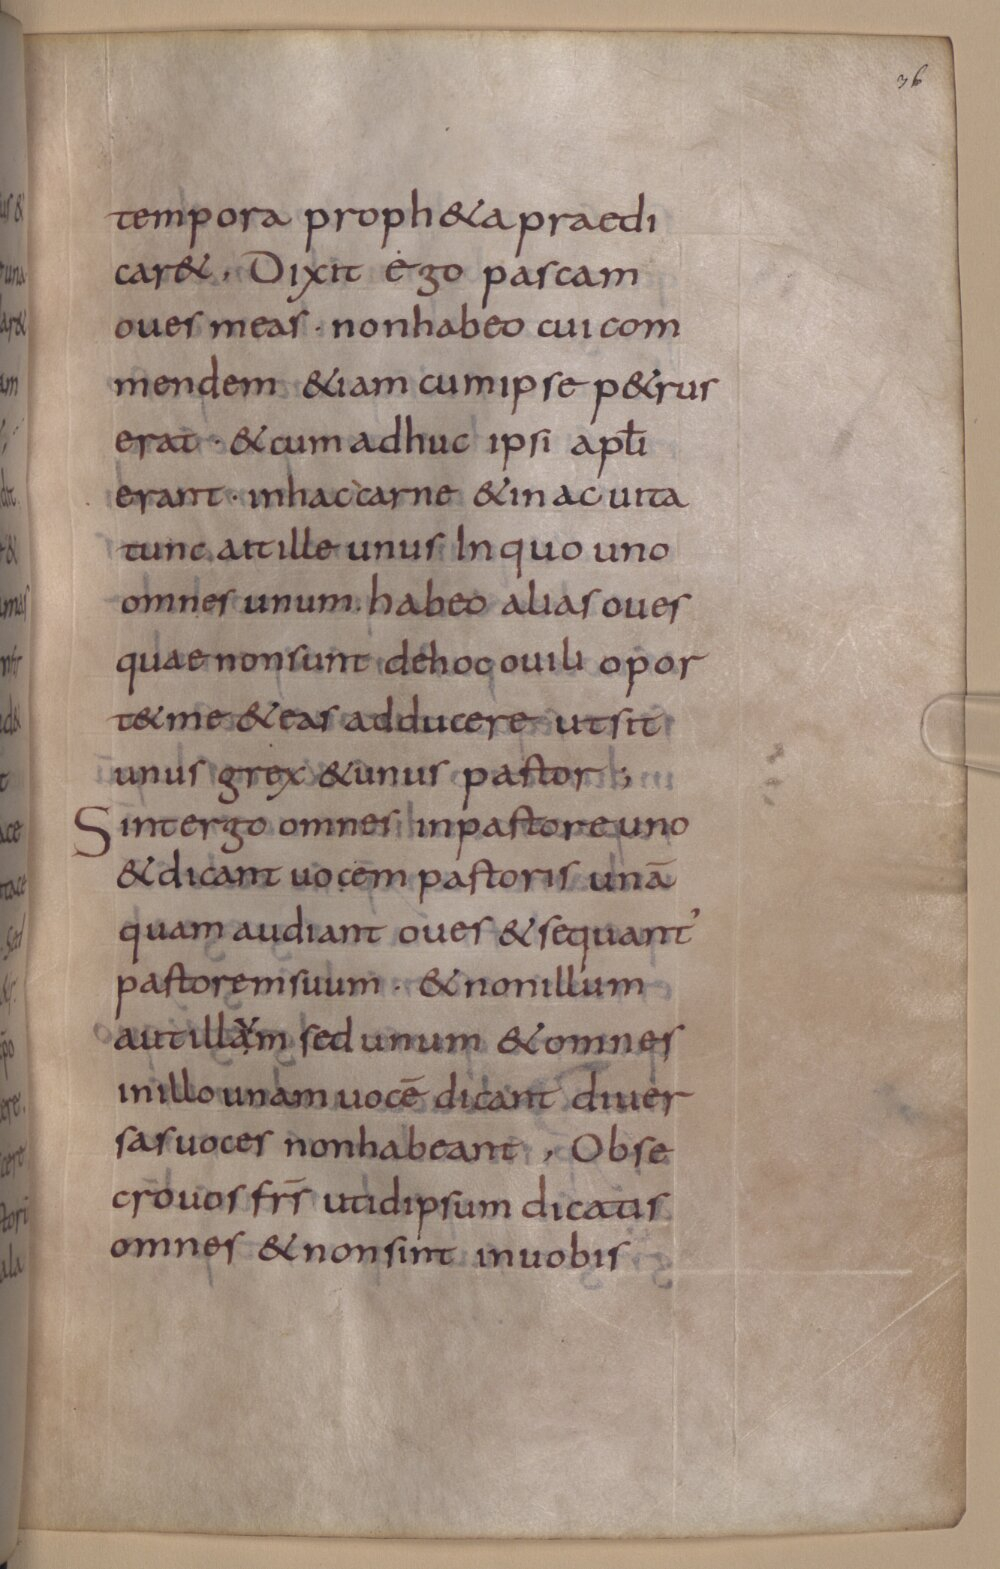 36
tempora proph&a praedi
car&. Dixit ego pascam
oues meas · nonhabeo cui com
mendem &iam cum ipse p&rus
erat · &cum adhuc ipsi apłi
erant · inhac carne &in ac uita
tunc ait ille unus In quo uno
omnes unum. habeo alias oues
quae non sunt dehoc ouili opor
t& me &eas adducere ut sit
unus grex &unus pastor ;
Sint ergo omnes inpastore uno
&dicant uocem pastoris unā
quam audiant oues &sequant'
pastorem suum · &non illum
aut illum sed unum &omnes
inillo unam uocē dicant diuer
sas uoces nonhabeant, Obse
cro uos frs̄ utidipsum dicatis
omnes &non sint inuobis